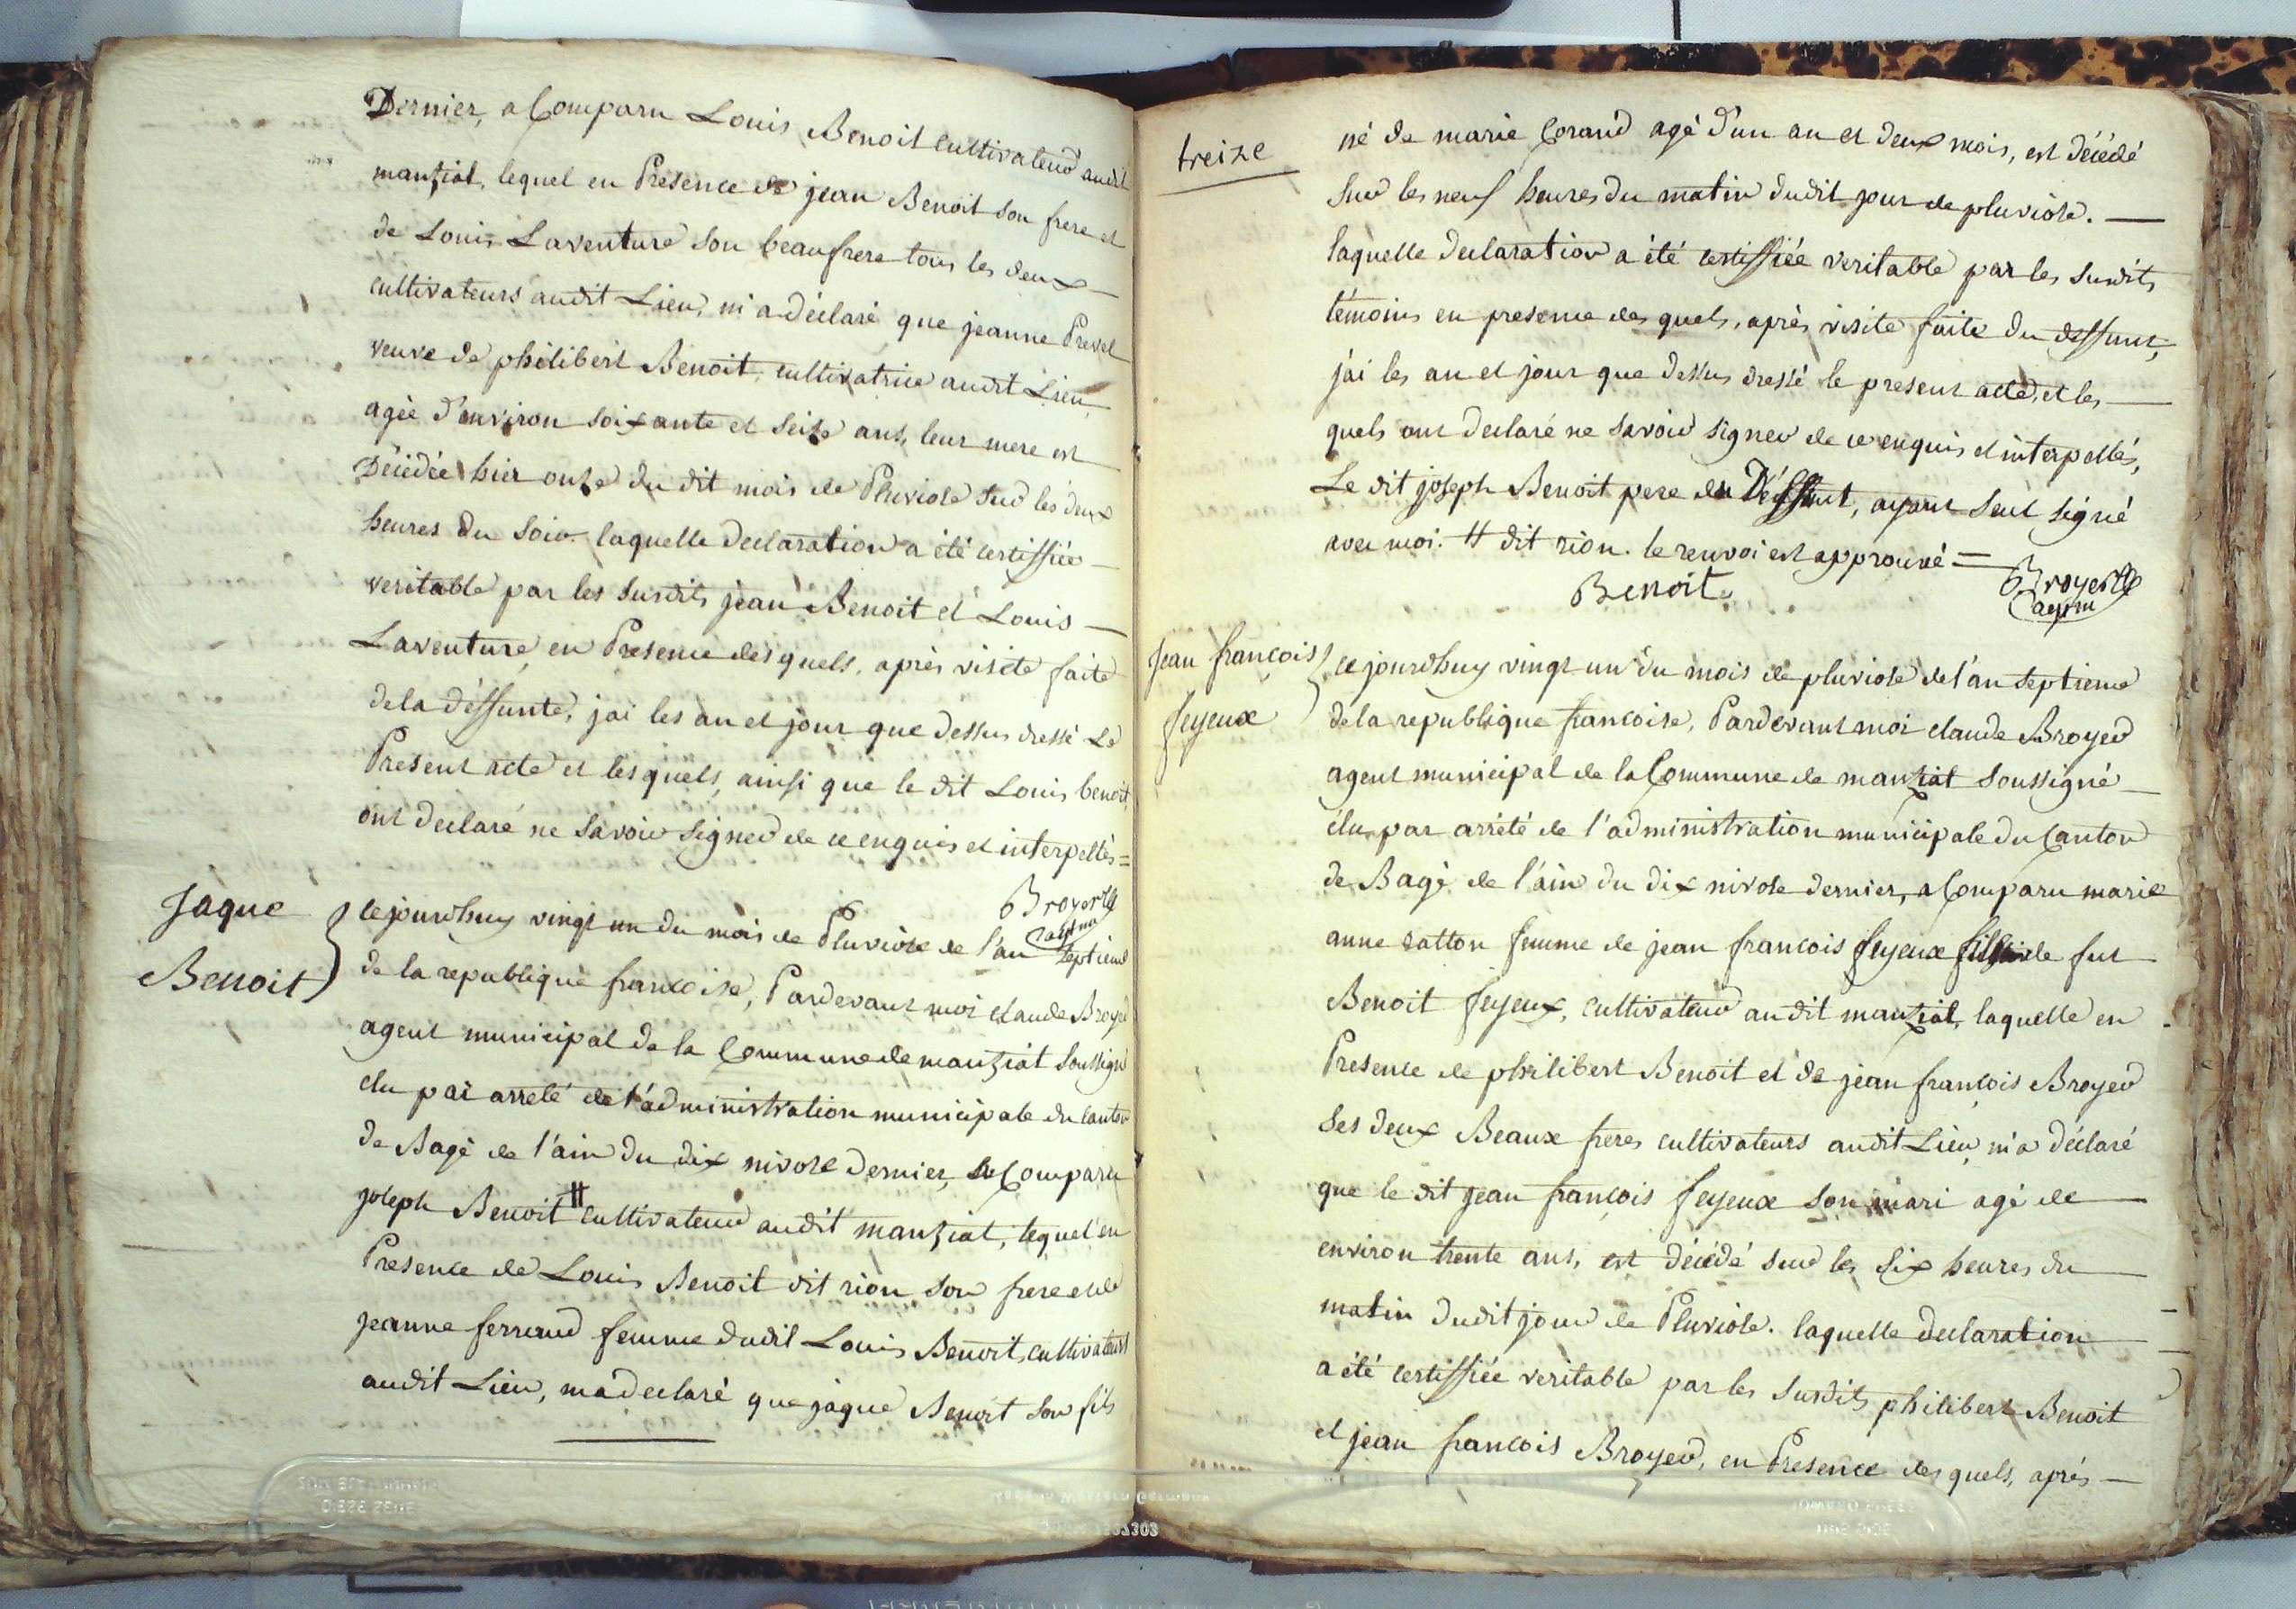 Dernier, a Comparu Louis Benoit cultivateur audit
manziat, lequel en Presence de jean Benoit son frere et
de Louis Laventure son beaufrere tous les deux
cultivateurs audit Lieu, m'a déclaré que jeanne Prevel
veuve de philibert Benoit, cultivatrice audit Lieu,
agée d'environ soixante et seize ans, leur mere est
Décédée hier onze du dit mois de Pluviose sur les deux
heures du soir. laquelle declaration a été certiffiée
veritable par les susdits jean Benoit et Louis
Laventure, en Presence des quels, après visite faite
de la déffunte, j'ai les an et jour que dessus dressé Le
Present acte et lesquels, ainsi que le dit Louis benoit,
ont declaré ne savoir signer de ce enquis et interpellés =
Broyer
agt m
Jaque
Benoit
cejourdhuy vingt un du mois de Pluviose de l'an septieme
de la republique francoise, Pardevant moi claude Broyer
agent municipal de la Commune de manziat soussigné
élu par arreté de l'administration municipale du canton
de Bagé de l'ain du dix nivose dernier, a Comparu
joseph Benoit # cultivateur audit manziat, lequel en
Presence de Louis Benoit dit rion son frere et de
jeanne ferrand femme dudit Louis Benoit, cultivateurs
audit Lieu, m'a declaré que jaque Benoit son fils
treize
né de marie Corand agé d'un an et deux mois, est décédé
sur les neuf heures du matin dudit jour de pluviose. —
laquelle declaration a été certiffiée veritable par les susdits
témoins en presence des quels, après visite faite du deffunt,
j'ai les an et jour que dessus dressé le present acte, et les
quels ont declaré ne savoir signer de ce enquis et interpellés,
Le dit joseph Benoit pere du Déffunt, ayant seul signé
avec moi. # dit rion. le renvoi est approuvé =
Benoit
Broyer
agt m
Jean françois
feyeux
cejourdhuy vingt un du mois de pluviose de l'an septieme
de la republique francoise, Pardevant moi claude Broyer
agent municipal de la Commune de manziat soussigné
élu par arrété de l'administration municipale du Canton
de Bagé de l'ain du dix nivose dernier, a Comparu marie
anne catton femme de jean francois feyeux fils de fut
Benoit feyeux, cultivateur audit manziat, laquelle en
Presence de philibert Benoit et de jean françois Broyer
ses deux Beaux freres cultivateurs audit Lieu m'a déclaré
que le dit jean françois feyeux son mari agé de
environ trente ans, est décédé sur les six heures du
matin dudit jour de Pluviose. laquelle declaration
a été certiffiée veritable par les susdits philibert Benoit
et jean francois Broyer, en Presence des quels, après —